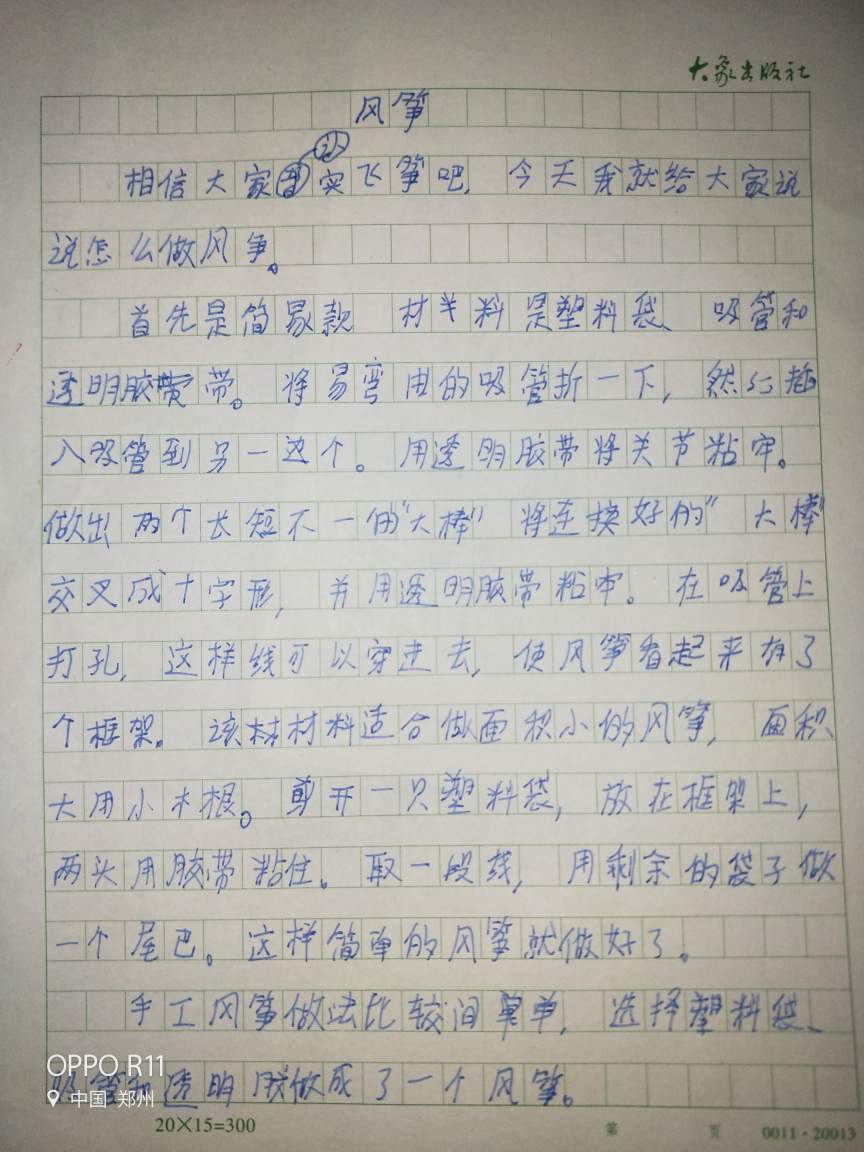 大象出版社
风筝
相信大家都实飞筝吧，今天我就给大家说
说怎么做风争。
首先是简易款 材料是塑料袋、吸管和
透明胶带。将易弯曲的吸管折一下，然后插
入吸管到另一边个。用透明胶带将关节粘牢。
做出两个长短不一的"大棒" 将连换好的"大棒"
交叉成十字形，并用透明胶带粘牢。在吸管上
打孔，这样线可以穿进去，使风筝看起来有了
个框架。该材材料适合做面积小的风筝，面积
大用小木根。剪开一只塑料袋，放在框架上，
两头用胶带粘住。取一段线，用剩余的袋子做
一个尾巴。这样简单的风筝就做好了。
手工风筝做法比较间单，选择塑料袋、
吸管和透明胶做成了一个风筝。
OPPO R11
中国·郑州
20×15=300
第 页 0011·20013